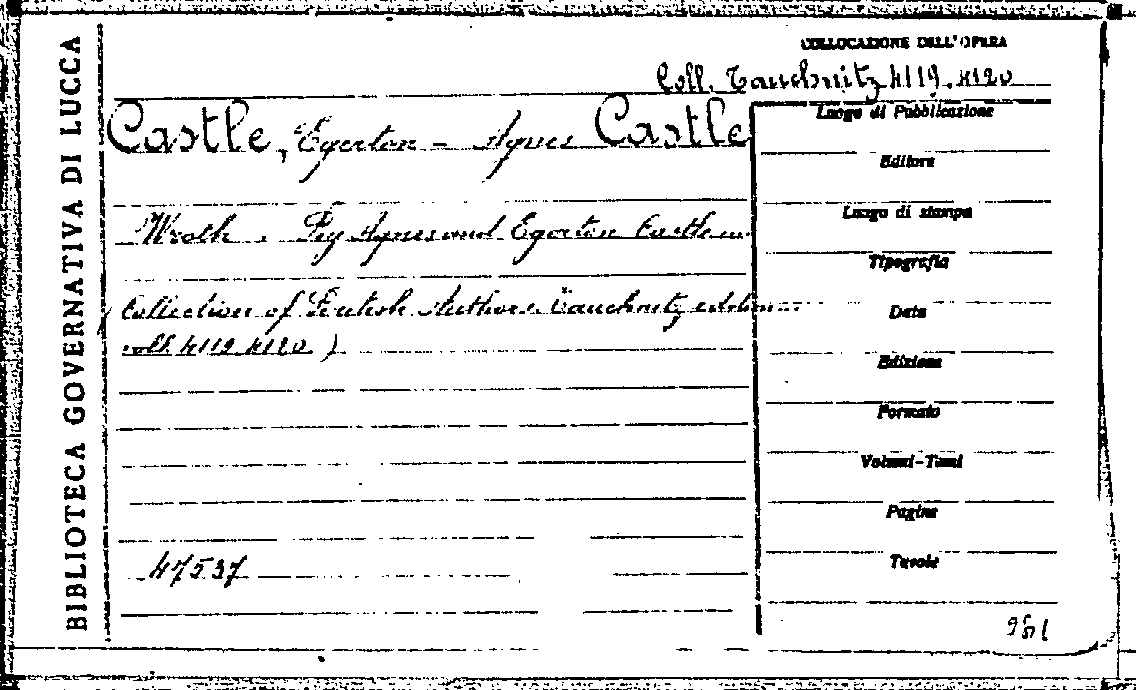 BIBLIOTECA GOVERNATIVA DI LUCCA
COLLOCAZIONE DELL'OPERA
Coll. Tauchnitz 4119.4120
Castle, Egerton - Agnes Castle
Wroth. By Agnes and Egerton Castle
(Collection of British Authors. Tauchnitz edition
voll. 4119.4120)
47537
Luogo di Pubblicazione
Editore
Luogo di stampa
Tipografia
Data
Edizione
Formato
Volumi-Tomi
Pagine
Tavole